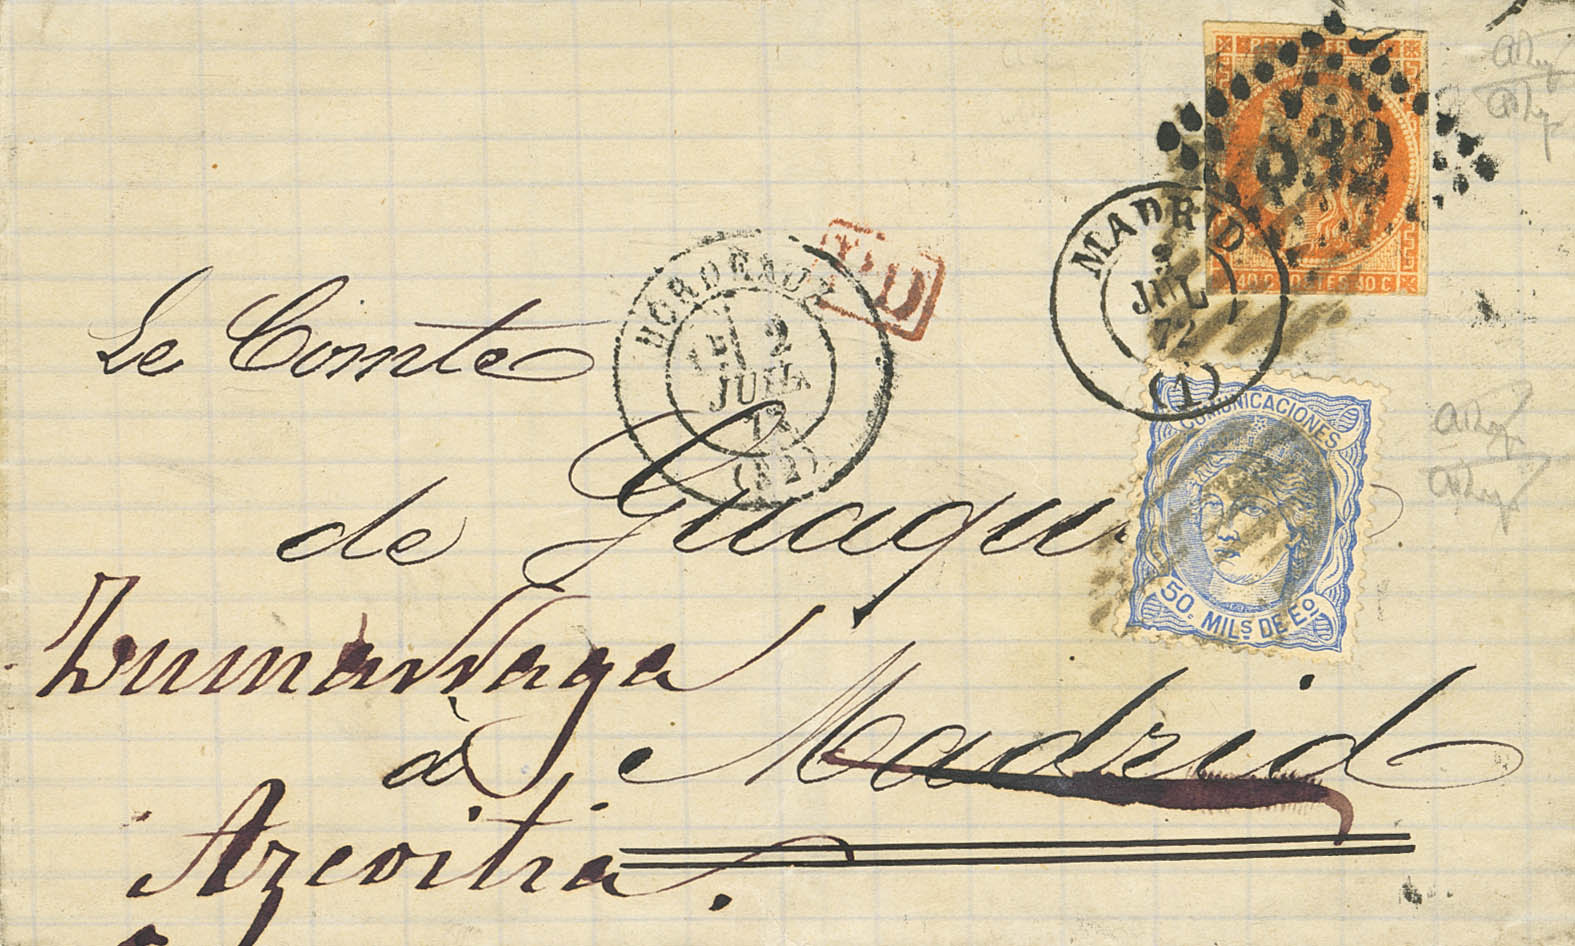 REPUB FRANC
532
40 C POSTES 40 C
MADRID
3
JUL
72
(1)
PD
BORDEAUX
2
JUIL
72
(32)
COMUNICACIONES
50 MILS DE Eo
Le Comte
de Guaqui
Zumarraga
à Madrid
Azcoitia.